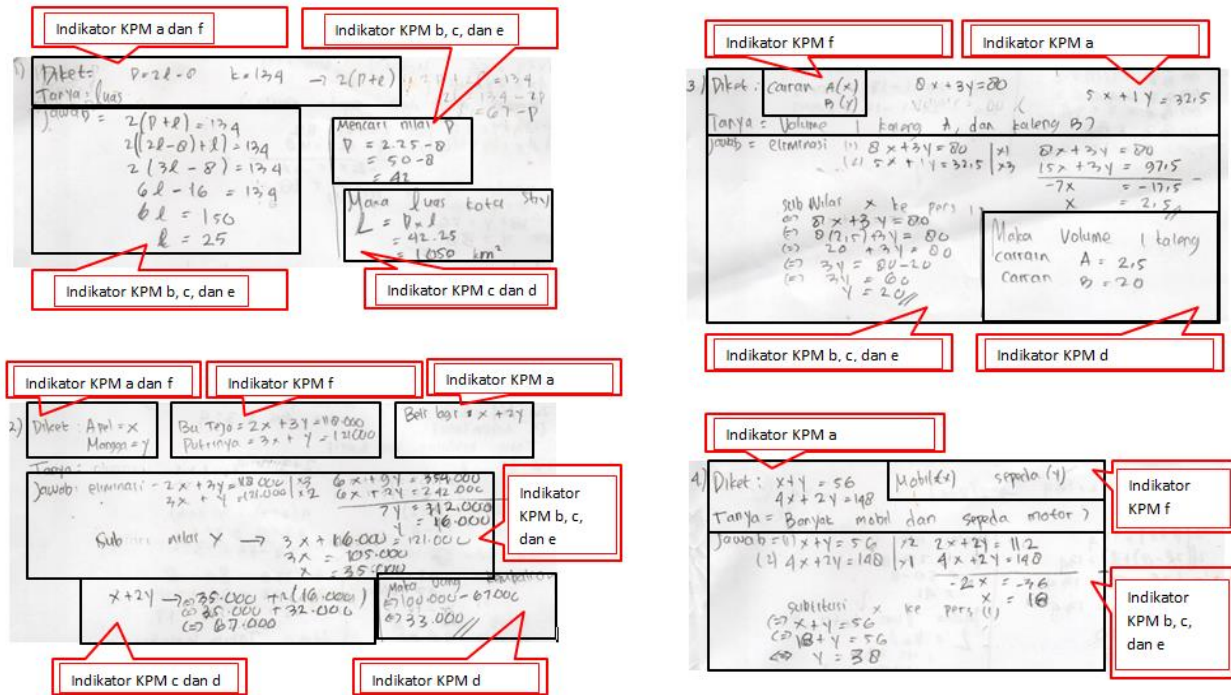 Indikator KPM a dan f
Indikator KPM b, c, dan e
1) Diket: P=2l-8 k=134 → 2(P+l)
Tanya: luas
Jawab = 2(P+l)=134
2((2l-8)+l)=134
2(3l-8)=134
6l-16=134
6l=150
l=25
Mencari nilai P
P = 2.25-8
= 50-8
= 42
Maka luas kota
L = P×l
= 42.25
= 1050 km²
Indikator KPM b, c, dan e
Indikator KPM c dan d
Indikator KPM a dan f
Indikator KPM f
Indikator KPM a
2) Diket: Apel=x
Mangga=y
Bu Tejo=2x+3y=118.000
Putrinya=3x+y=121.000
Beli lagi x+2y
Tanya:
Jawab: eliminasi - 2x+3y=118.000 |x3 6x+9y=354.000
3x+y=121.000 |x2 6x+2y=242.000
7y=112.000
y=16.000
nilai y → 3x+16.000=121.000
3x=105.000
x=35.000
Indikator KPM b, c, dan e
x+2y → 35.000+2(16.000)
(=) 35.000+32.000
(=) 67.000
Maka uang
(=) 100.000-67000
(=) 33.000
Indikator KPM c dan d
Indikator KPM d
Indikator KPM f
Indikator KPM a
3) Diket: cairan A(x) 8x+3y=80
B(y) 5x+1y=32,5
Tanya = Volume 1 kaleng A, dan kaleng B?
Jawab = eliminasi (1) 8x+3y=80 |x1 8x+3y=80
(2) 5x+1y=32,5 |x3 15x+3y=97,5
-7x = -17,5
x = 2,5
Sub Nilai x ke pers 1
(=) 8x+3y=80
(=) 8(2,5)+3y=80
(=) 20+3y=80
(=) 3y=80-20
(=) 3y=60
y=20
Maka Volume 1 kaleng
cairan A = 2,5
cairan B = 20
Indikator KPM b, c, dan e
Indikator KPM d
Indikator KPM a
4) Diket: x+y=56
4x+2y=148
Mobil(x) sepeda (y)
Indikator KPM f
Tanya = Banyak mobil dan sepeda motor?
Jawab = (1) x+y=56 |x2 2x+2y=112
(2) 4x+2y=148 |x1 4x+2y=148
-2x = -36
x = 18
Substitusi x ke pers (1)
(=) x+y=56
(=) 18+y=56
<=> y=38
Indikator KPM b, c, dan e